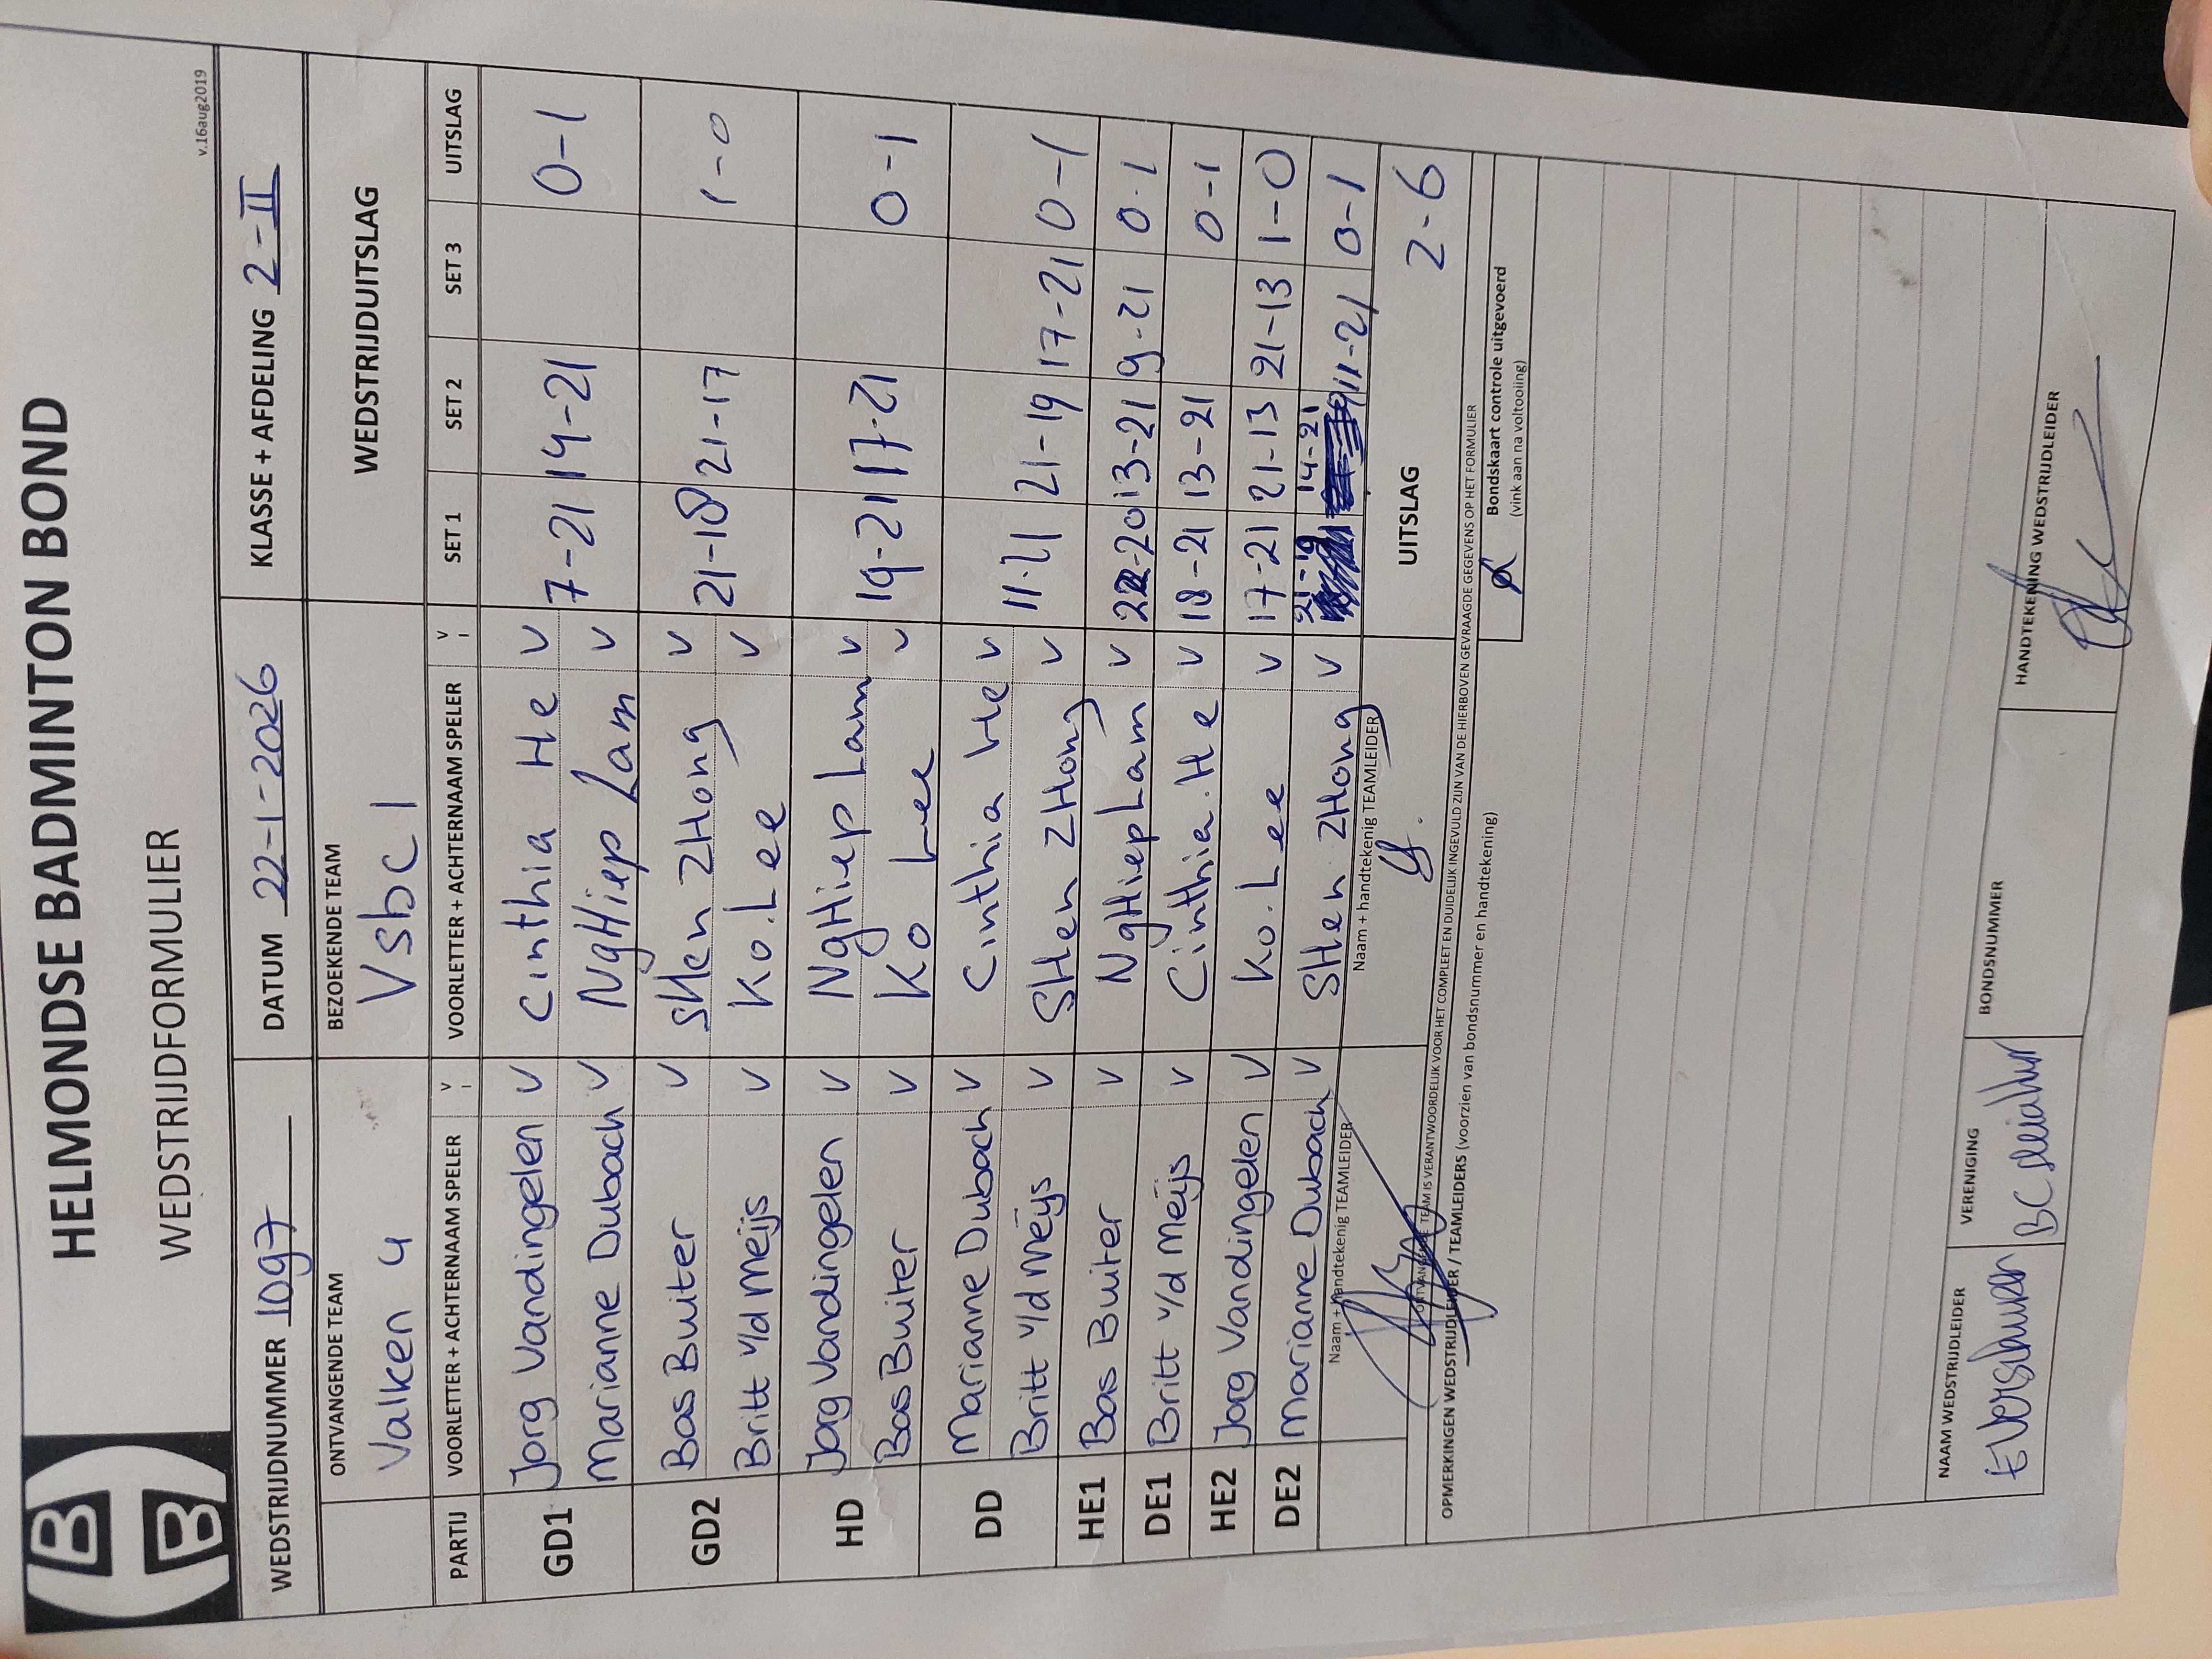 HELMONDSE BADMINTON BOND
WEDSTRIJDFORMULIER
v.16aug2019
WEDSTRIJDNUMMER 1097 DATUM 22-1-2026 KLASSE + AFDELING 2-II
ONTVANGENDE TEAM BEZOEKENDE TEAM WEDSTRIJDUITSLAG
Valken 4 Vsbc 1
PARTIJ VOORLETTER + ACHTERNAAM SPELER V VOORLETTER + ACHTERNAAM SPELER V SET 1 SET 2 SET 3 UITSLAG
GD1 Jorg Vandingelen V Cinthia He V 7-21 14-21 0-1
Marianne Dubach V NgHiep Lam V
GD2 Bas Buiter V SHen ZHong V 21-18 21-17 1-0
Britt v/d Meijs V Ko.Lee V
HD Jorg Vandingelen V NgHiep Lam V 19-21 17-21 0-1
Bas Buiter V Ko Lee V
DD Marianne Dubach V Cinthia He V 11-21 21-19 17-21 0-1
Britt v/d Meijs V SHen ZHong V
HE1 Bas Buiter V NgHiep Lam V 22-20 13-21 9-21 0-1
DE1 Britt v/d Meijs V Cinthia.He V 18-21 13-21 0-1
HE2 Jorg Vandingelen V Ko.Lee V 17-21 21-13 21-13 1-0
DE2 Marianne Dubach V SHen ZHong V 21-19 14-21 11-21 0-1
Naam + handtekenig TEAMLEIDER Naam + handtekenig TEAMLEIDER UITSLAG 2-6
ONTVANGENDE TEAM IS VERANTWOORDELIJK VOOR HET COMPLEET EN DUIDELIJK INGEVULD ZIJN VAN DE HIERBOVEN GEVRAAGDE GEGEVENS OP HET FORMULIER
OPMERKINGEN WEDSTRIJDLEIDER / TEAMLEIDERS (voorzien van bondsnummer en handtekening)
Bondskaart controle uitgevoerd
(vink aan na voltooiing)
NAAM WEDSTRIJDLEIDER VERENIGING BONDSNUMMER HANDTEKENING WEDSTRIJDLEIDER
BC